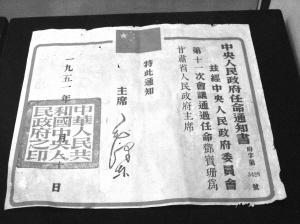 中央人民政府任命通知書
府字第3429號
兹經中央人民政府委員會
第十一次會議通過任命鄧寶珊為
甘肅省人民政府主席
特此通知
主席
毛澤東
一九五一年
日
中華人民共和國中央人民政府之印